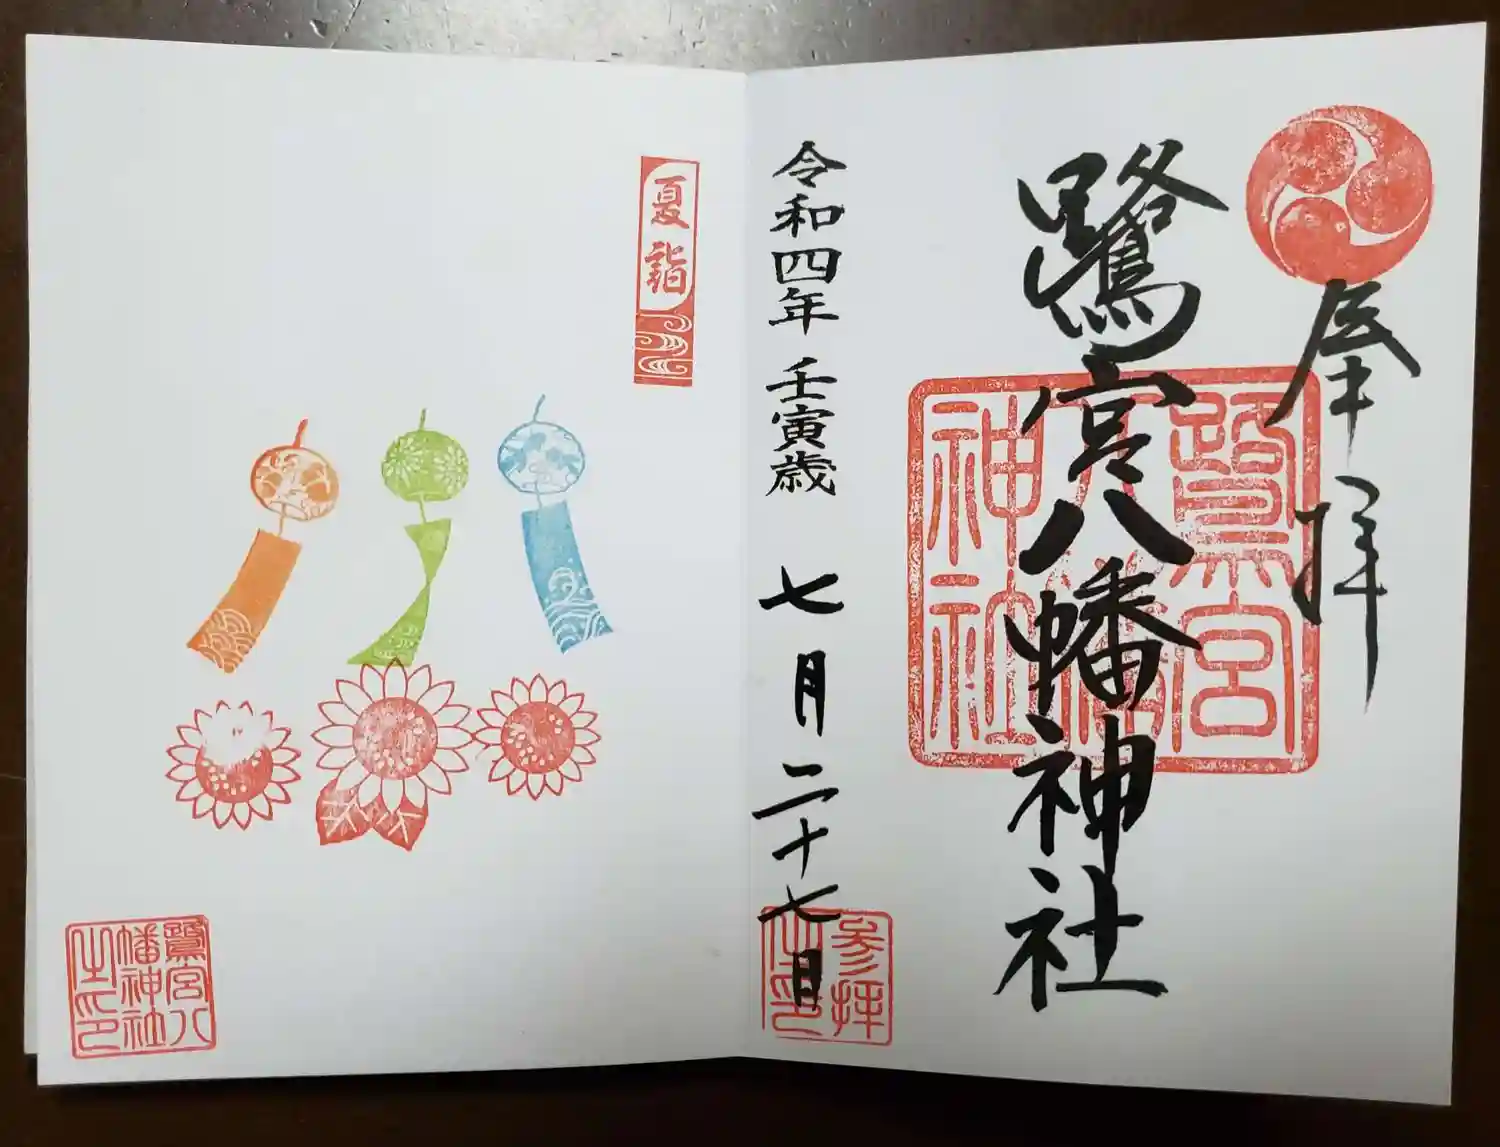 奉拝
鷺宮八幡神社
鷺宮
八幡
神社
令和四年 壬寅歳 七月二十七日
参拝
之印
夏詣
鷺宮八
幡神社
之印